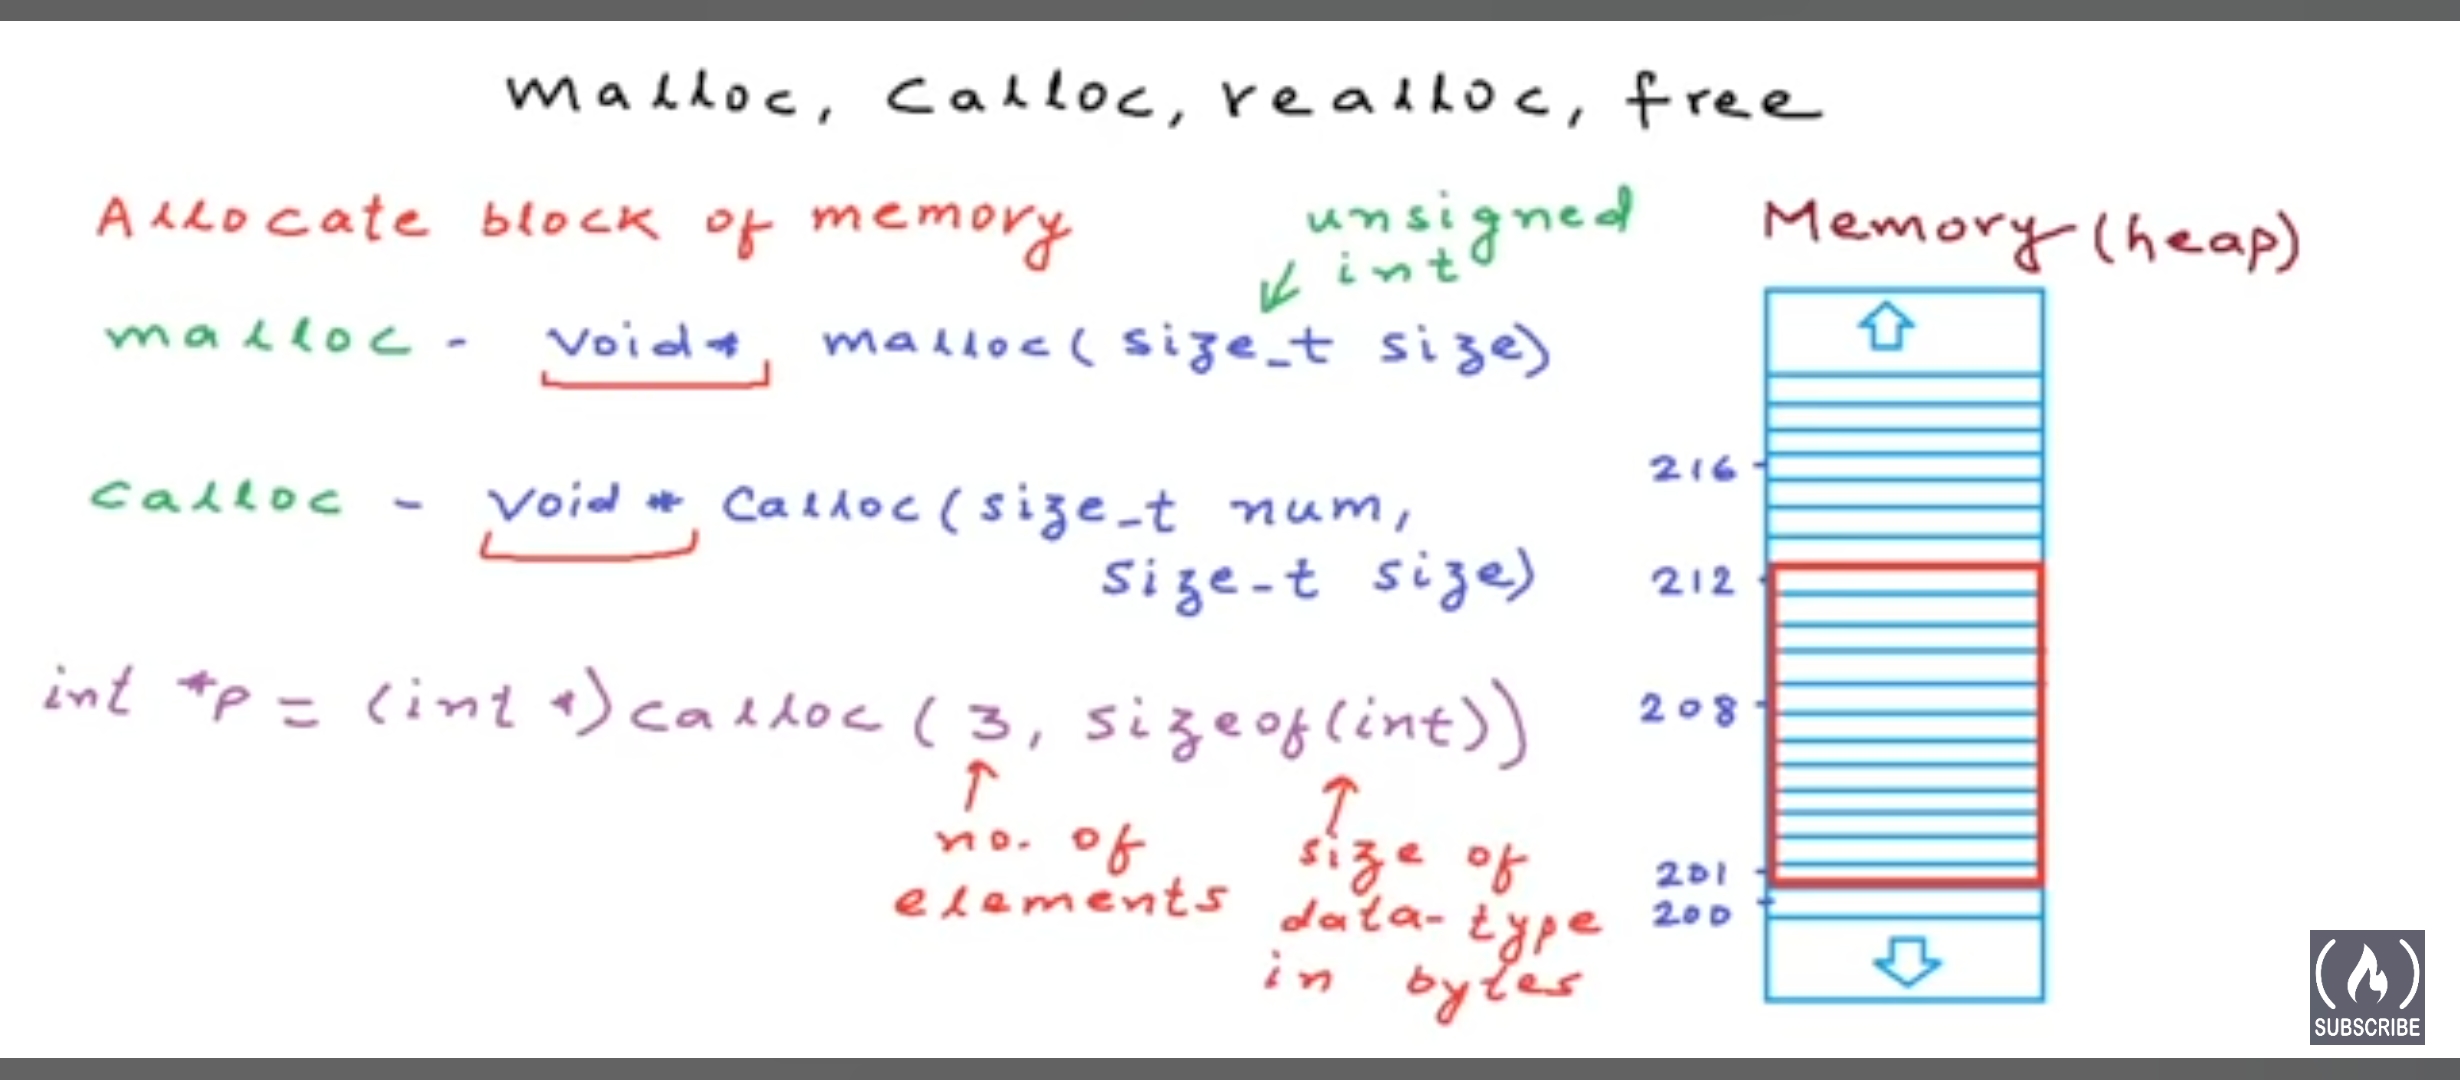 malloc, calloc, realloc, free
Allocate block of memory
unsigned
int
malloc - void* malloc(size_t size)
calloc - void * calloc(size_t num,
size-t size)
int *p = (int *)calloc(3, sizeof(int))
no. of
elements
size of
data-type
in bytes
Memory(heap)
216
212
208
201
200
SUBSCRIBE